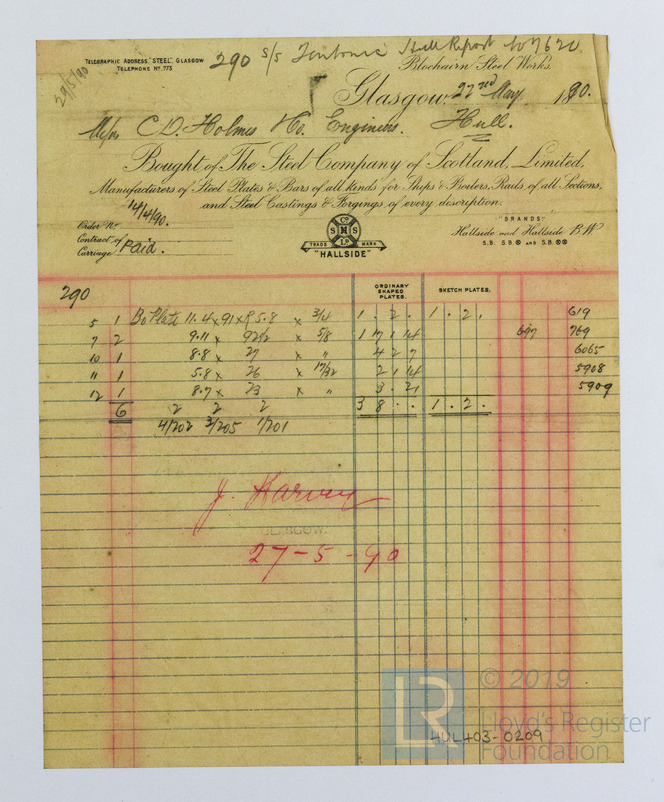 TELEGRAPHIC ADDRESS, "STEEL", GLASGOW
TELEPHONE Nº 773
290 S/S Teutonic Hull Report No 7620
29/5/90
Blochairn Steel Works.
Glasgow, 22nd May 1890.
Messrs C.D. Holmes & Co. Engineers. Hull.
Bought of The Steel Company of Scotland, Limited,
Manufacturers of Steel Plates & Bars of all kinds for Ships & Boilers, Rails of all Sections,
and Steel Castings & Forgings of every description.
Order No
Contract of 14/4/90.
Carriage Paid.
Co
S N S
LD
TRADE MARK
"HALLSIDE"
"BRANDS"
Hallside and Hallside B.W
S.B. S.B.® AND S.B.®®
ORDINARY SHAPED PLATES.
SKETCH PLATES.
290
5 1 Bo Plate 11.4 x 91 x 5.8 x 3/4 1. 2. 1. 2. 619
7 2 9.11 x 92 1/2 x 5/8 1 17 1 14 697 769
10 1 8.8 x 27 x " 4 2 7 6065
11 1 5.8 x 26 x 17/32 2 1 14 5908
12 1 8.7 x 23 x " 3. 21 5909
6 2 2 2 3 8 . . 1. 2.
4/202 3/205 7/201
J. Harvey
GLASGOW
27-5-90
LR
© 2019
Lloyd's Register
Foundation
HUL403-0209